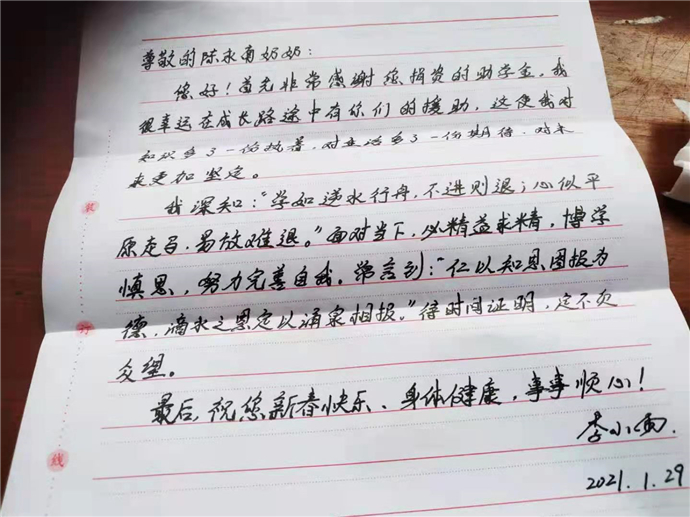 尊敬的陈永南奶奶：
您好！首先非常感谢您捐资的助学金，我
很幸运在成长路途中有你们的援助，这使我对
知识多了一份执着，对生活多了一份期待，对未
来更加坚定。
我深知：“学如逆水行舟，不进则退；心似平
原走马，易放难退。”面对当下，必精益求精，博学
慎思，努力完善自我。常言到：“仁以知恩图报为
德，滴水之恩定以涌泉相报。”待时间证明，定不负
众望。
最后，祝您新春快乐、身体健康，事事顺心！
李小雨.
2021.1.29
装
订
线